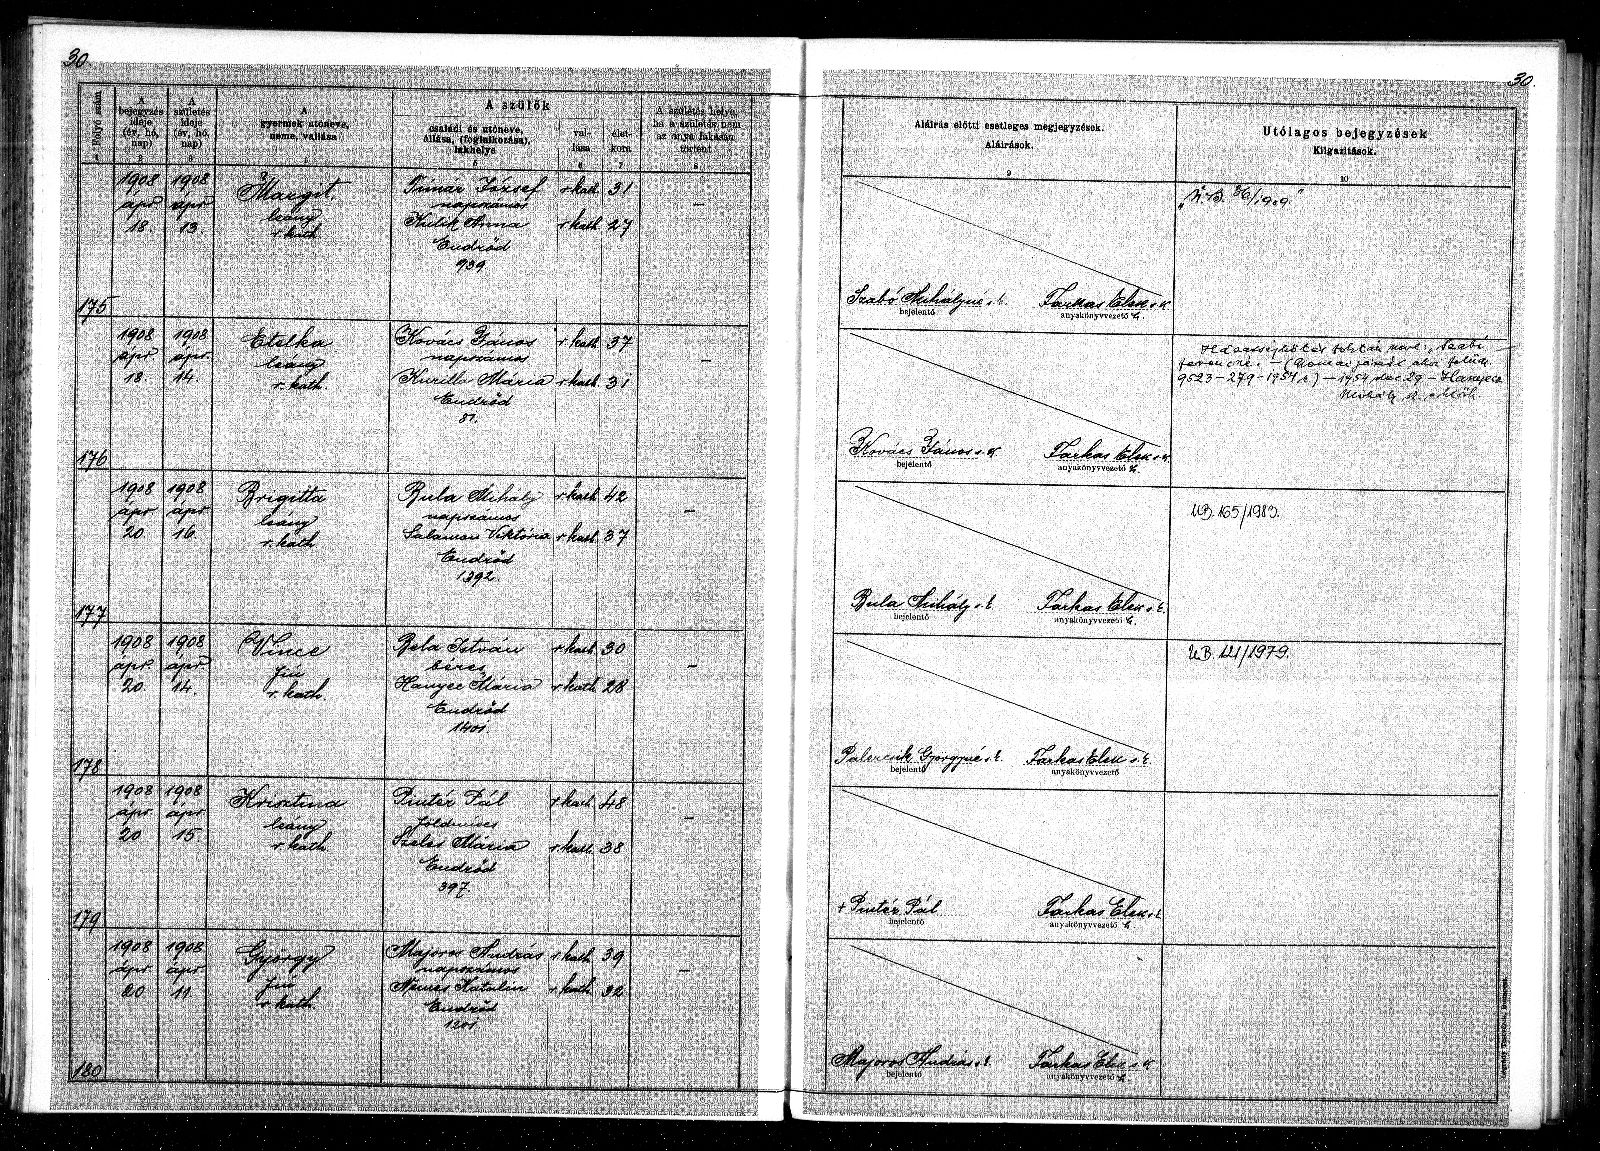 30.
30.
Folyó szám
A bejegyzés ideje (év, hó, nap)
A születés ideje (év, hó, nap)
A gyermek utóneve, neme, vallása
A szülők
családi és utóneve, állása, (foglalkozása), lakhelye
vallása
életkora
A születés helye, ha a születés nem az anya lakásán történt
Aláírás előtti esetleges megjegyzések.
Aláírások.
Utólagos bejegyzések
Kiigazítások.
1908 1908 Margit. Timár József r. kath 31
ápr ápr leány napszámos
18. 13. r. kath Kulik Anna r. kath 27
Endrőd
939
175
Szabó Mihályné s. k. Farkas Elek s. k.
bejelentő anyakönyvvezető h.
1908 1908 Etelka Kovács János r. kath 37
ápr ápr. leány napszámos
18. 14. r. kath Kurilla Mária r. kath 31
Endrőd
81.
176
9523-279-1954
Kovács János s. k. Farkas Elek s. k.
bejelentő anyakönyvvezető h.
1908 1908 Brigitta Bula Mihály r. kath 42
ápr ápr leány napszámos
20. 16. r. kath Salamon Viktória r. kath 37
Endrőd
1392.
177
U.B. 165/1983.
Bula Mihály s. k. Farkas Elek s. k.
bejelentő anyakönyvvezető h.
1908 1908 Vince Bela István r. kath 30
ápr. ápr fiu béres
20. 14. r. kath. Hanyec Mária r. kath 28
Endrőd
1401.
178
U.B. 121/1979.
Palercsik Györgyné s. k. Farkas Elek s. k.
bejelentő anyakönyvvezető
1908 1908 Krisztina Pintér Pál r. kath 48
ápr. ápr. leány földmives
20 15. r. kath. Szeles Mária r. kath. 38
Endrőd
397.
179
+ Pintér Pál Farkas Elek s. k.
bejelentő anyakönyvvezető h.
1908 1908 György Majoros András r. kath 39
ápr. ápr fiu napszámos
20 11. r. kath. Nemes Katalin r. kath. 32
Endrőd
1201.
180
Majoros András s. k. Farkas Elek s. k.
bejelentő anyakönyvvezető h.